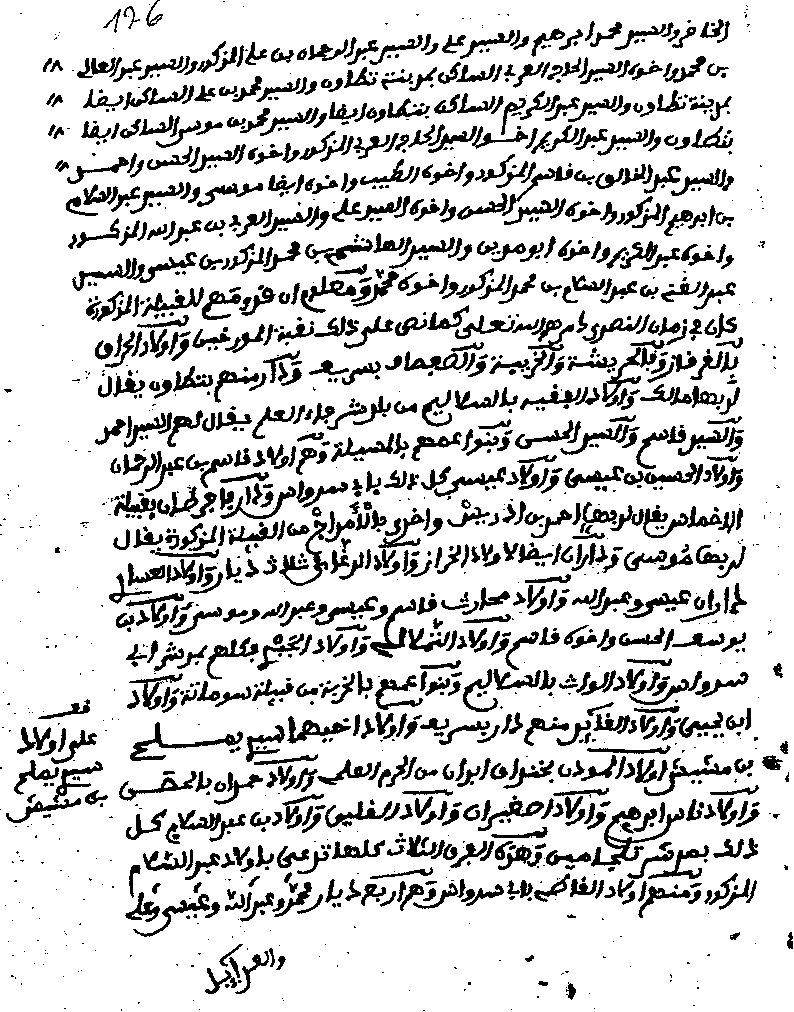 126
الخضر والسيد محمد ابرهيم والسيد علي والسيد عبد الرحمان بن علي المذكور والسيد عبد العال
بن محمد واخوه السيد الحاج العربي الساكن بمدينة تطاون والسيد محمد بن علي الساكن ايضا
بمدينة تطاون والسيد عبد الكريم الساكن بتطاون ايضا والسيد محمد بن موسى الساكن ايضا
بتطاون والسيد عبد الكريم اخو السيد الحاج العربي المذكور واخوه السيد الحسن واحمد
والسيد عبد الخالق بن قاسم المذكور واخوه الطيب واخوه ايضا موسى والسيد عبد السلام
بن ابرهيم المذكور واخوه السيد الحسن واخوه السيد علي والسيد العربي بن عبد الله المذكور
واخوه عبد الكريم واخوه ابو مدين والسيد الهاشم بن محمد المذكور بن عيسى والسيد
عبد الغني بن عبد السلام بن محمد المذكور واخوه محمد ومعلوم ان قدومهم للقبيلة المذكورة
كان في زمان النصرى دمرهم الله تعلى كما نص على ذلك بقية المورخين واولاد الحراق
بالغرفاز وبالحريشة والخريبة والصعصاف بسريف ودار منهم بتطاون يقال
لربها مالك واولاد الفقيه بالسلاليم من بلد شرفاء العلم يقال لهم السيد احمد
والسيد قاسم والسيد الحسن وبنوا عمهم بالمسيلة وهم اولاد قاسم بن عبد الرحمان
واولاد الحسين بن عيسى واولاد عيسى كل ذلك بابي سدواس وداريا حرطان بقبيلة
الاخماس يقال لربها احمد بن ادريس واخرى بالامراح من القبيلة المذكورة يقال
لربها موسى وداران ايضا لاولاد الخراز واولاد ثلاث ديار واولاد العسال
داران عيسى وعبد الله واولاد محارث قاسم وعيسى وعبد الله وموسى واولاد بن
يوسف الحسن واخوه قاسم واولاد الشمالي واولاد وكلهم بمدشر ابي
سدواس واولاد الوارث بالسلاليم وبنوا عمهم بالخربة من قبيلة سوماتة واولاد
ابن يحيى واولاد منهم دار بسريف واولاد اخيهما سيد يملح
بن مشيش اولاد المودن بخندق ابوان من الحرم العلمي واولاد حمدان بالحصن
واولاد ناس ابرهيم واولاد احفيران واولاد الفليق واولاد بن عبد السلام كل
ذلك بمدشر وهذه الفرق الثلاث كلها تدعى باولاد عبد السلام
المذكور ومنهم اولاد بابي سدواس وهم اربع ديار محمد وعبد الله وعيسى وعلي
قف
على اولاد
سيد يملح
بن مشيش